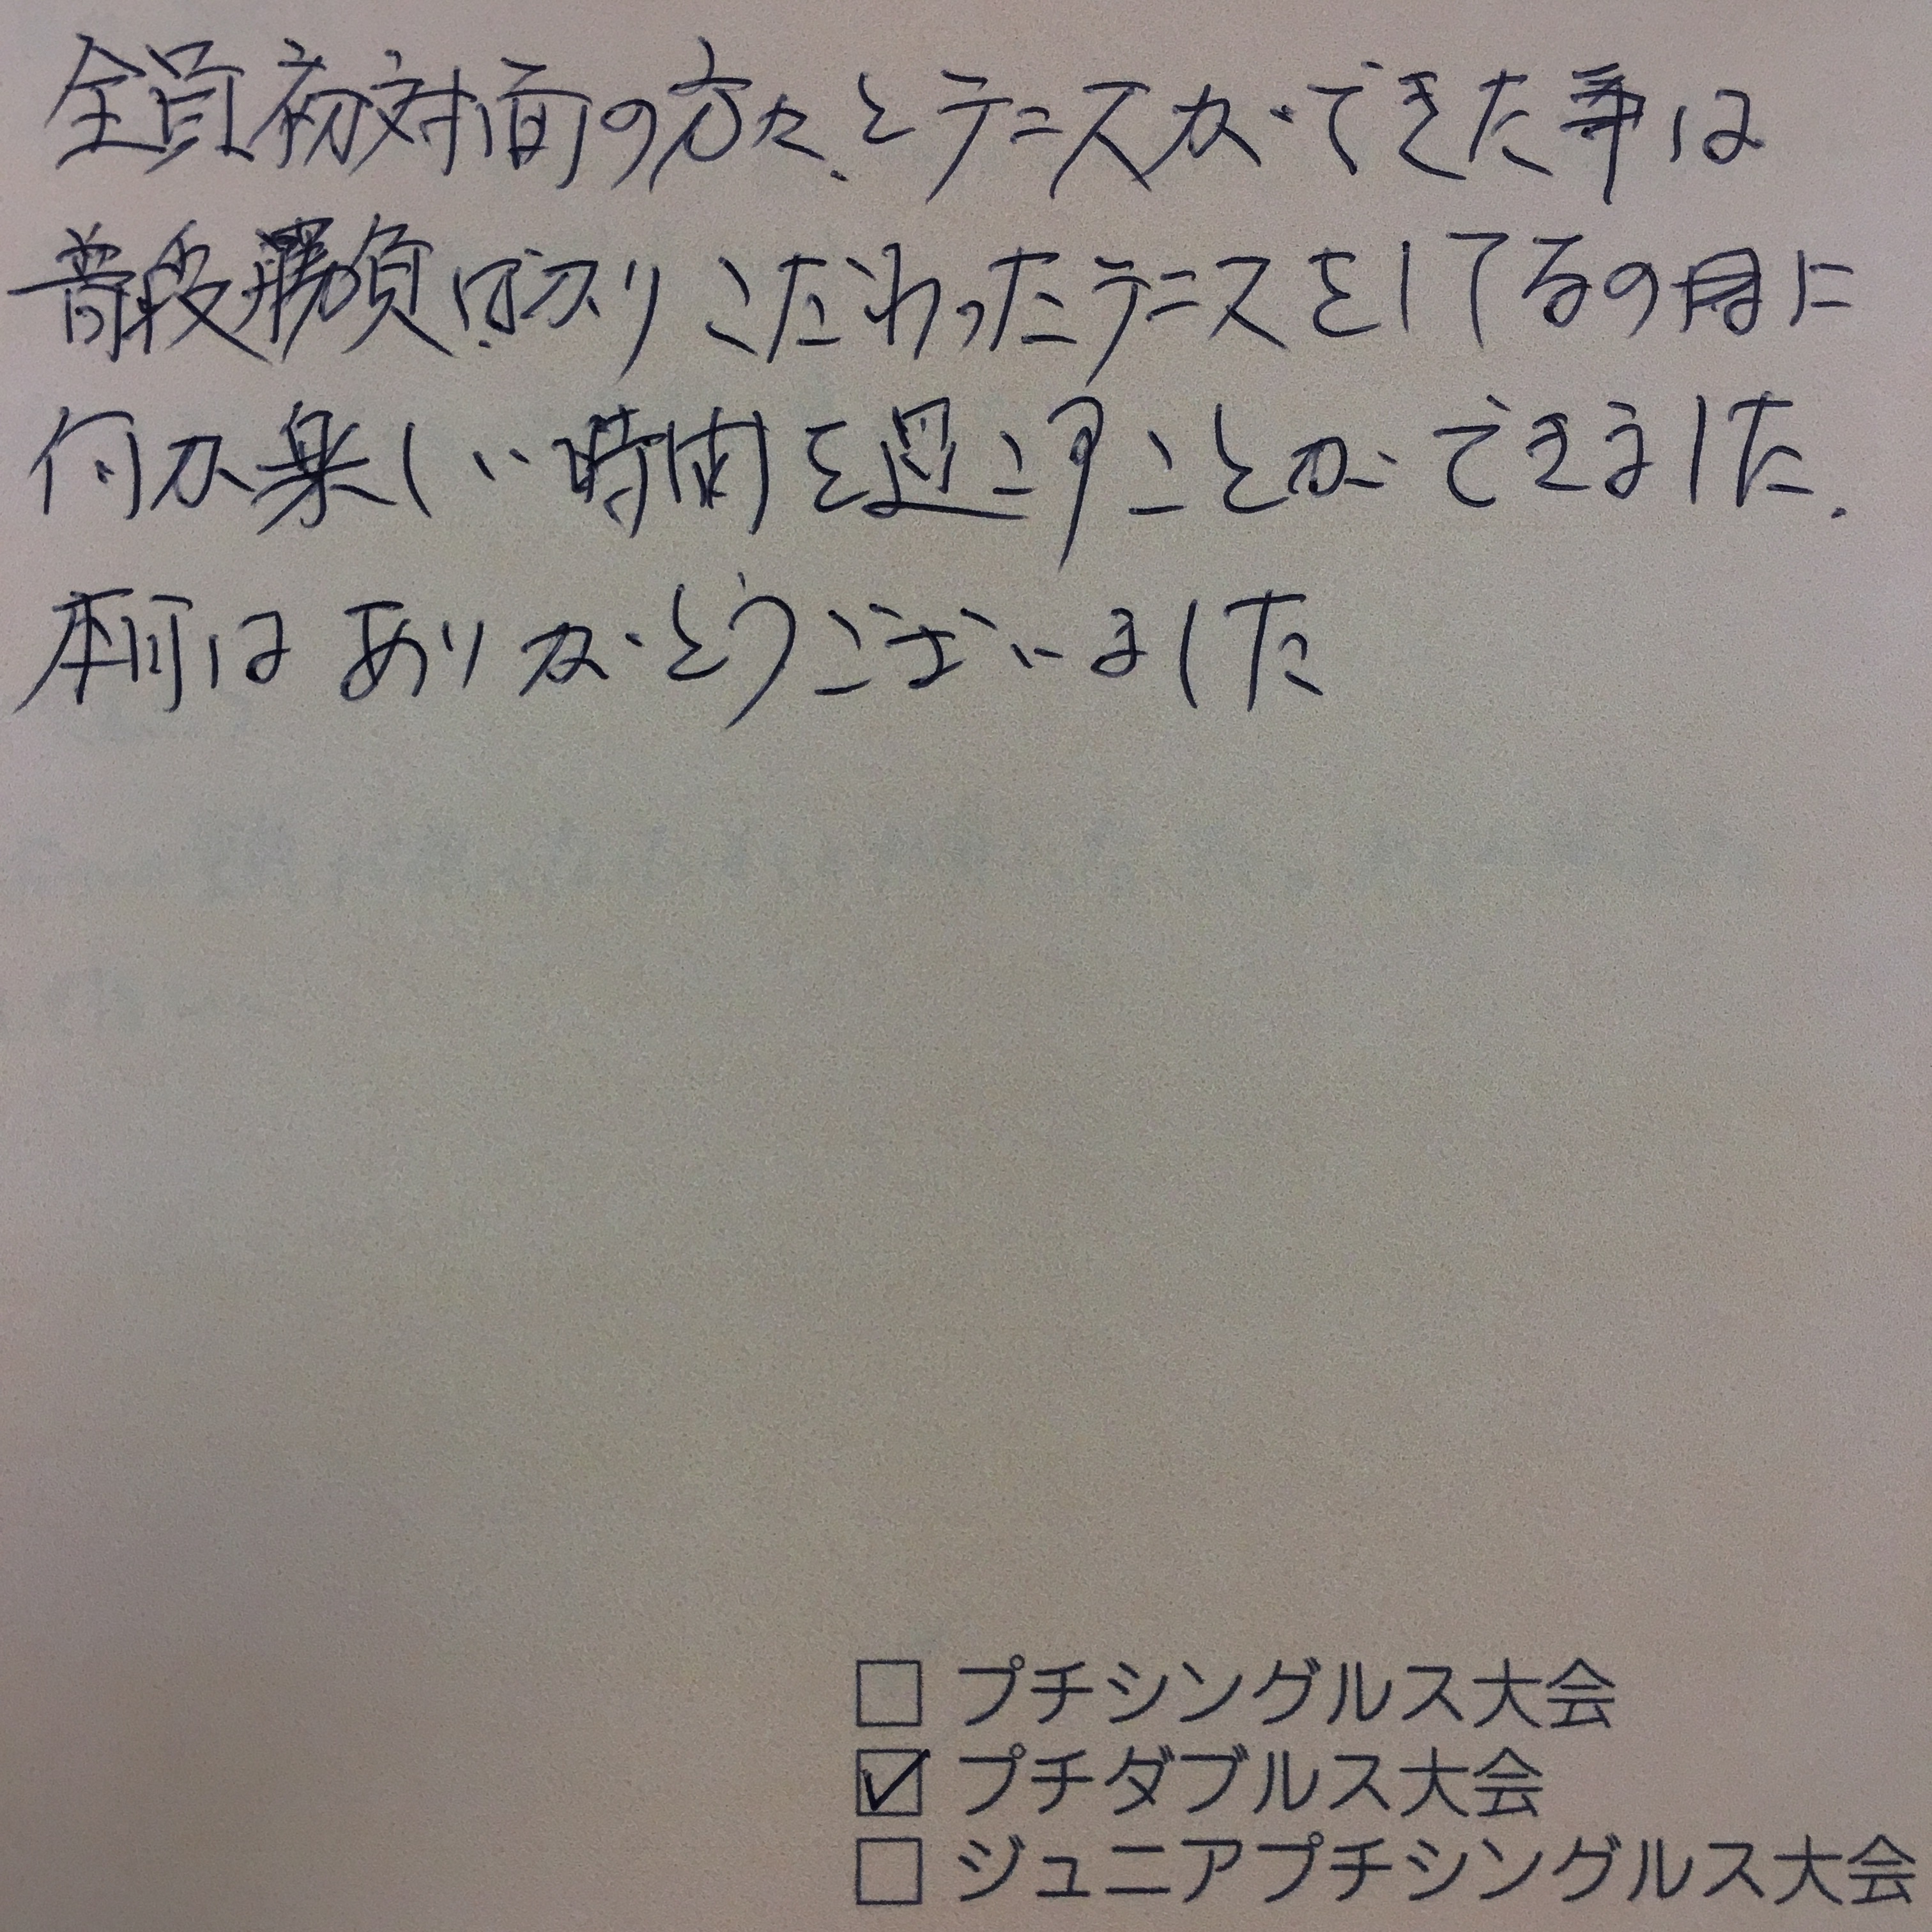 全員初対面の方々とテニスができた事は
普段勝負ばかりこだわったテニスをしてるの身に
何か楽しい時間を過ごすことができました.
本日はありがとうございました
□ プチシングルス大会
☑ プチダブルス大会
□ ジュニアプチシングルス大会